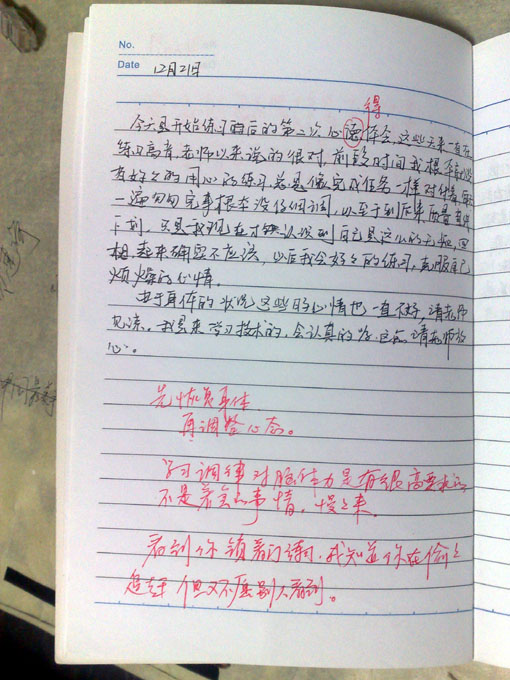 No.
Date 12月21日
得
今天是开始练习以后的第二次心德体会,这些天来一直在
练习高音,老师以来说的很对,前段时间我根本就没
有好好的用心的练习,总是像完成任务一样对待,
一遍匆匆完事根本没仔细调,以至于到后来质量直线
下到,只是我现在才认识到自己是这么的无知,回
想起来确实不应该,以后我会好好的练习,克服自己
烦燥的心情。
由于身体的状况这些日的心情也一直不好,请老师
见谅。我是来学习技术的,会认真的,这点请老师放
心。
先恢复身体
再调整心态。
学习调律对脑体力是有很高要求的
不是着急的事情,慢慢来
看到你锁着门练习,我知道你在偷偷
但又不愿别人看到。